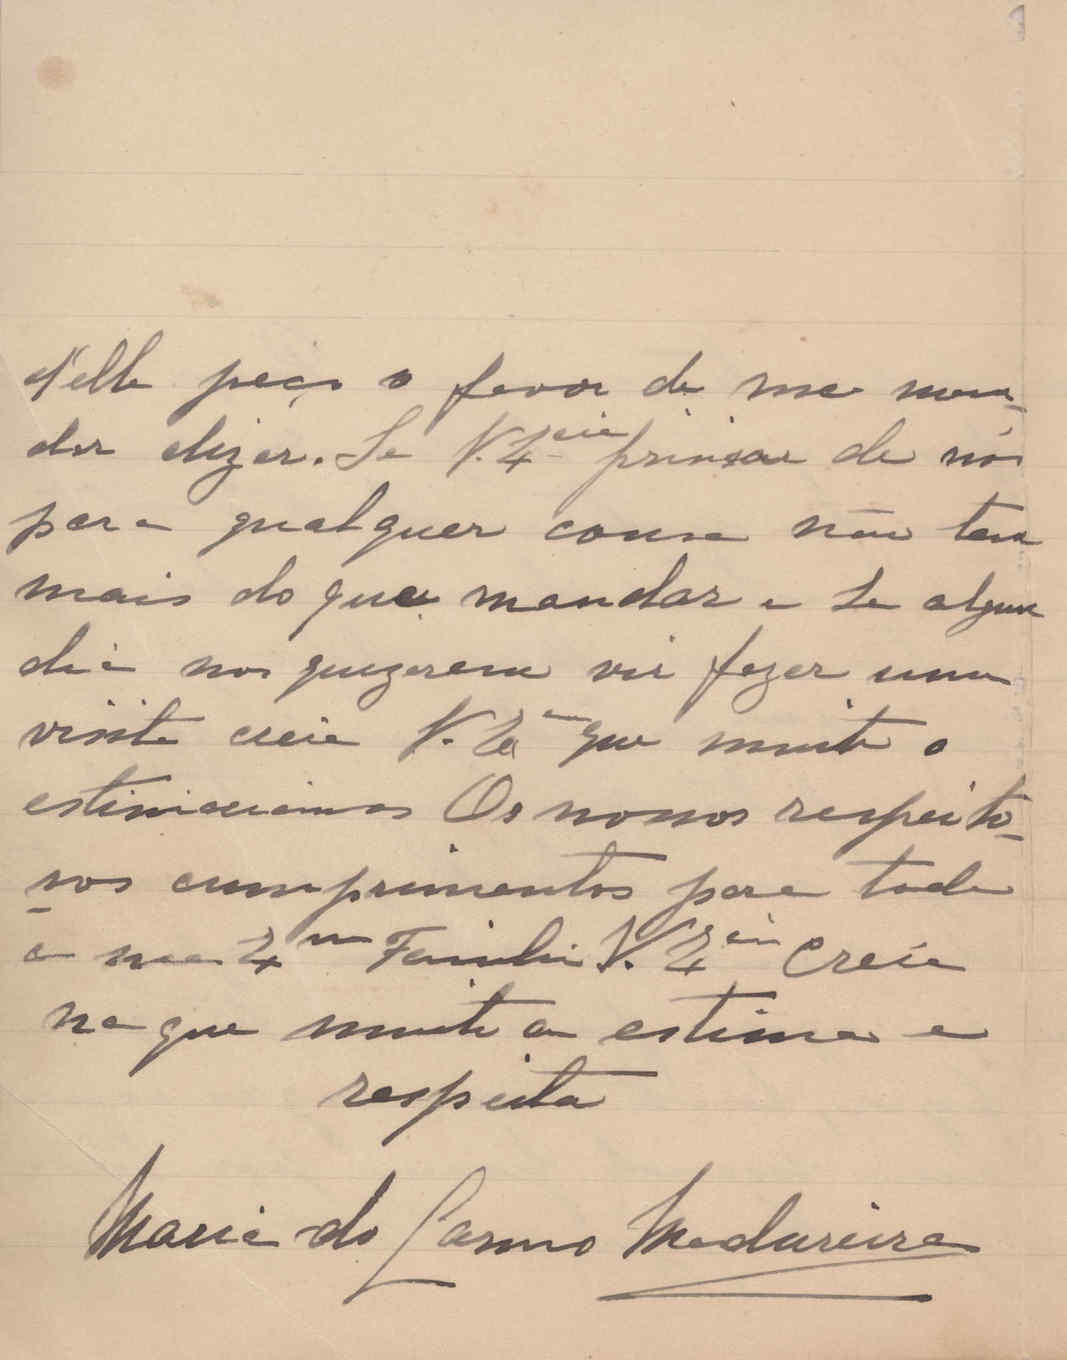 d'elle peço o favor de me man-
dar dizer. Se V. Ex.cia precisar de nós
para qualquer cousa não tem
mais do que mandar e se algum
dia nos quizerem vir fazer uma
visita creia V. Ex.cia que muito o
estimariamos Os nossos respeito-
sos cumprimentos para toda
a sua Ex.ma Familia V. Ex.cia creia
na que muito a estima e
respeita
Maria do Carmo Madureira